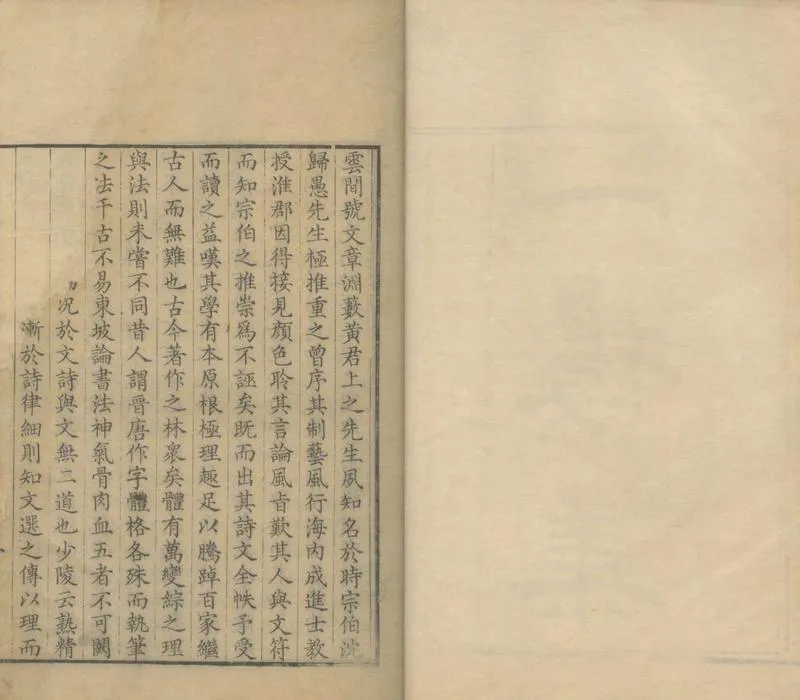 雲間號文章淵藪黃君上之先生夙知名於時宗伯沈
歸愚先生極推重之曾序其制藝風行海內成進士教
授淮郡因得接見顏色聆其言論風旨歎其人與文符
而知宗伯之推崇爲不誣矣既而出其詩文全帙予受
而讀之益嘆其學有本原根極理趣足以騰踔百家繼
古人而無難也古今著作之林衆矣體有萬變綜之理
與法則未嘗不同昔人謂晉唐作字體格各殊而執筆
之法千古不易東坡論書法神氣骨肉血五者不可闕
况於文詩與文無二道也少陵云熟精
漸於詩律細則知文選之傳以理而